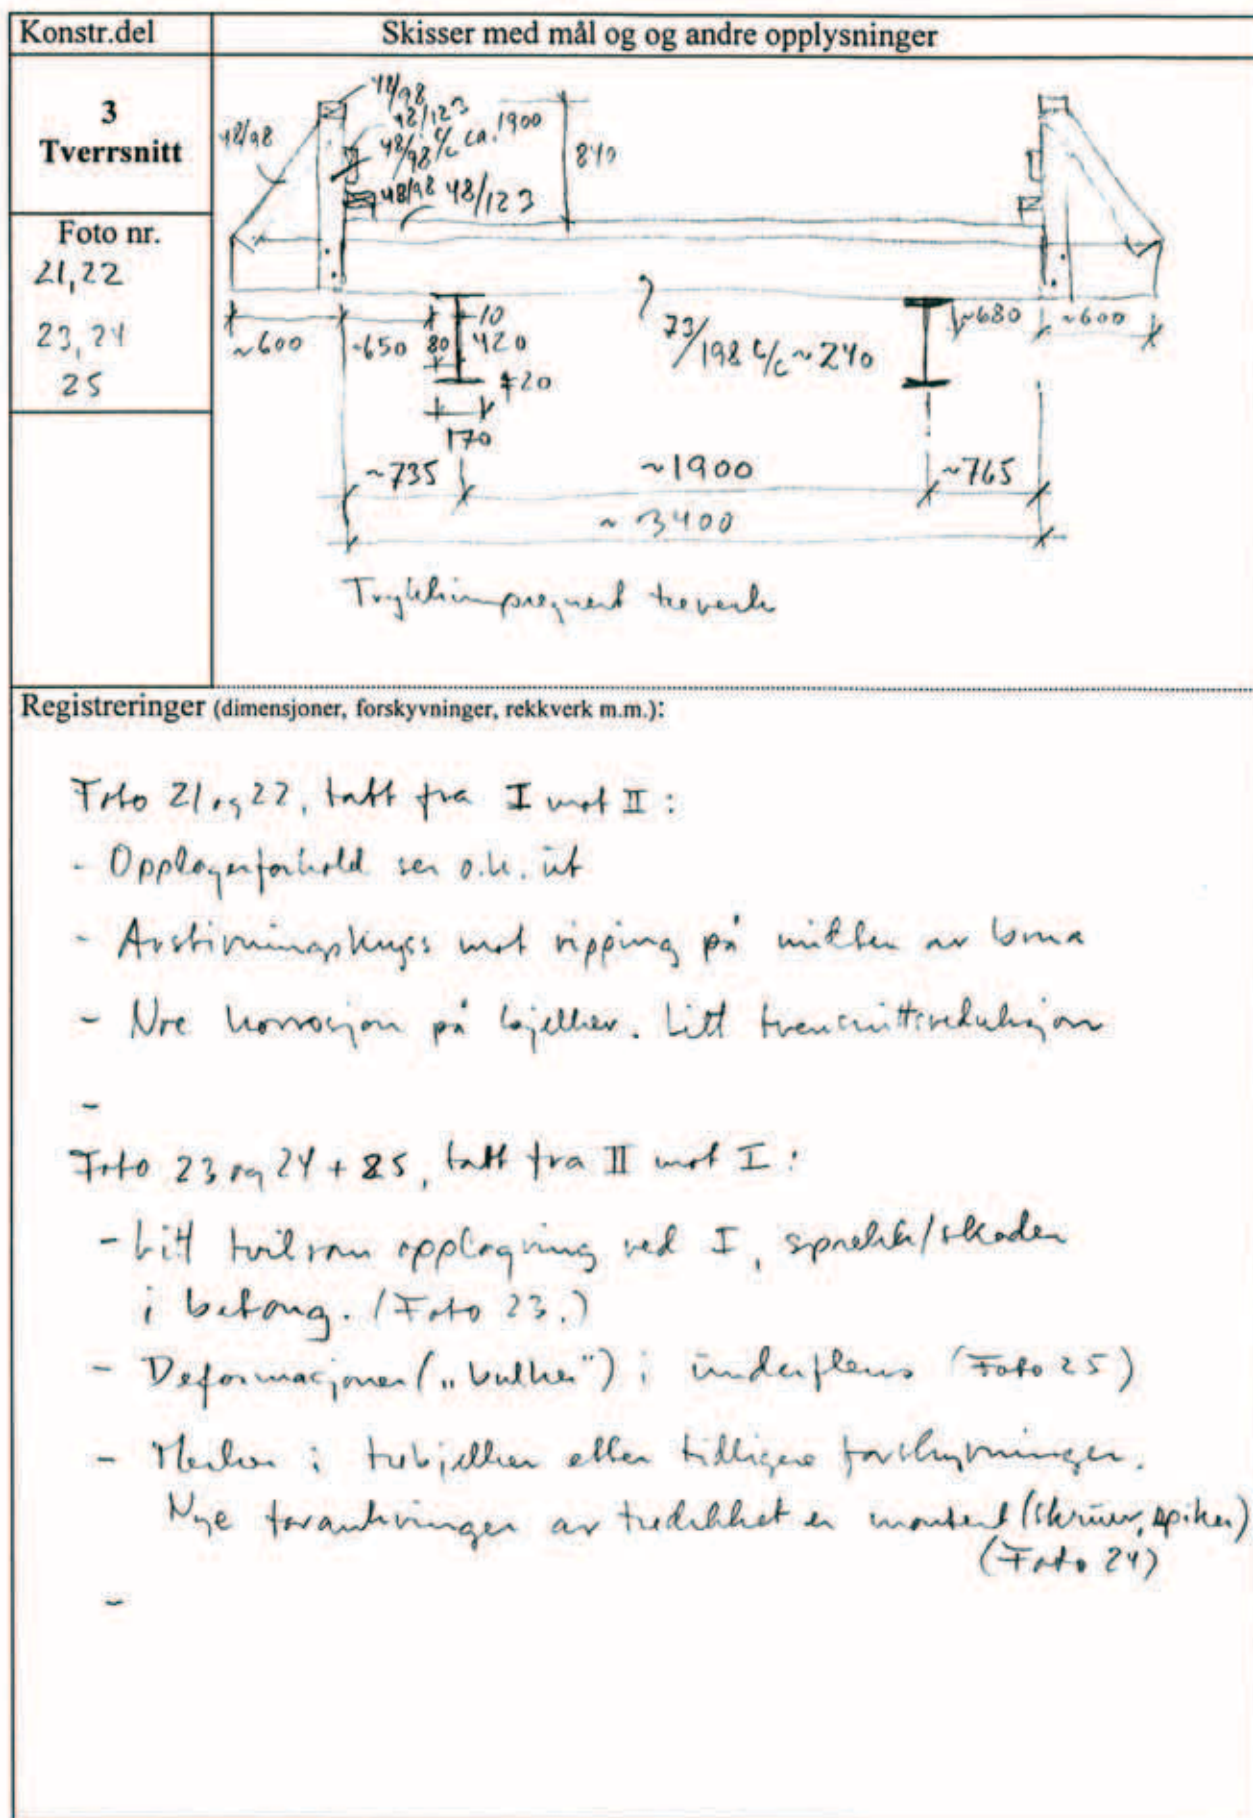 Konstr.del
Skisser med mål og og andre opplysninger
3
Tverrsnitt
Foto nr.
21,22
23,24
25
48/98
48/98
48/123
48/98 c/c ca. 1900
48/98 48/123
840
~600
~650
80
10
420
20
170
73/198 c/c ~240
~680
~600
~735
~1900
~765
~3400
Trykkimpregnert treverk
Registreringer (dimensjoner, forskyvninger, rekkverk m.m.):
Foto 21 og 22, tatt fra I mot II:
- Opplagerforhold ser o.k. ut
- Avstivningskryss mot vipping på midten av brua
- Noe korrosjon på bjelker. Litt tverrsnittsreduksjon
-
Foto 23 og 24 + 25, tatt fra II mot I:
- Litt tvilsom opplagring ved I, sprekk/skader
i betong. (Foto 23.)
- Deformasjoner („bulker") i underflens (Foto 25)
- Merker i trebjelker etter tidligere forskyvninger.
Nye forankringer av tredekket er montert (skruer, spiker)
(Foto 24)
-